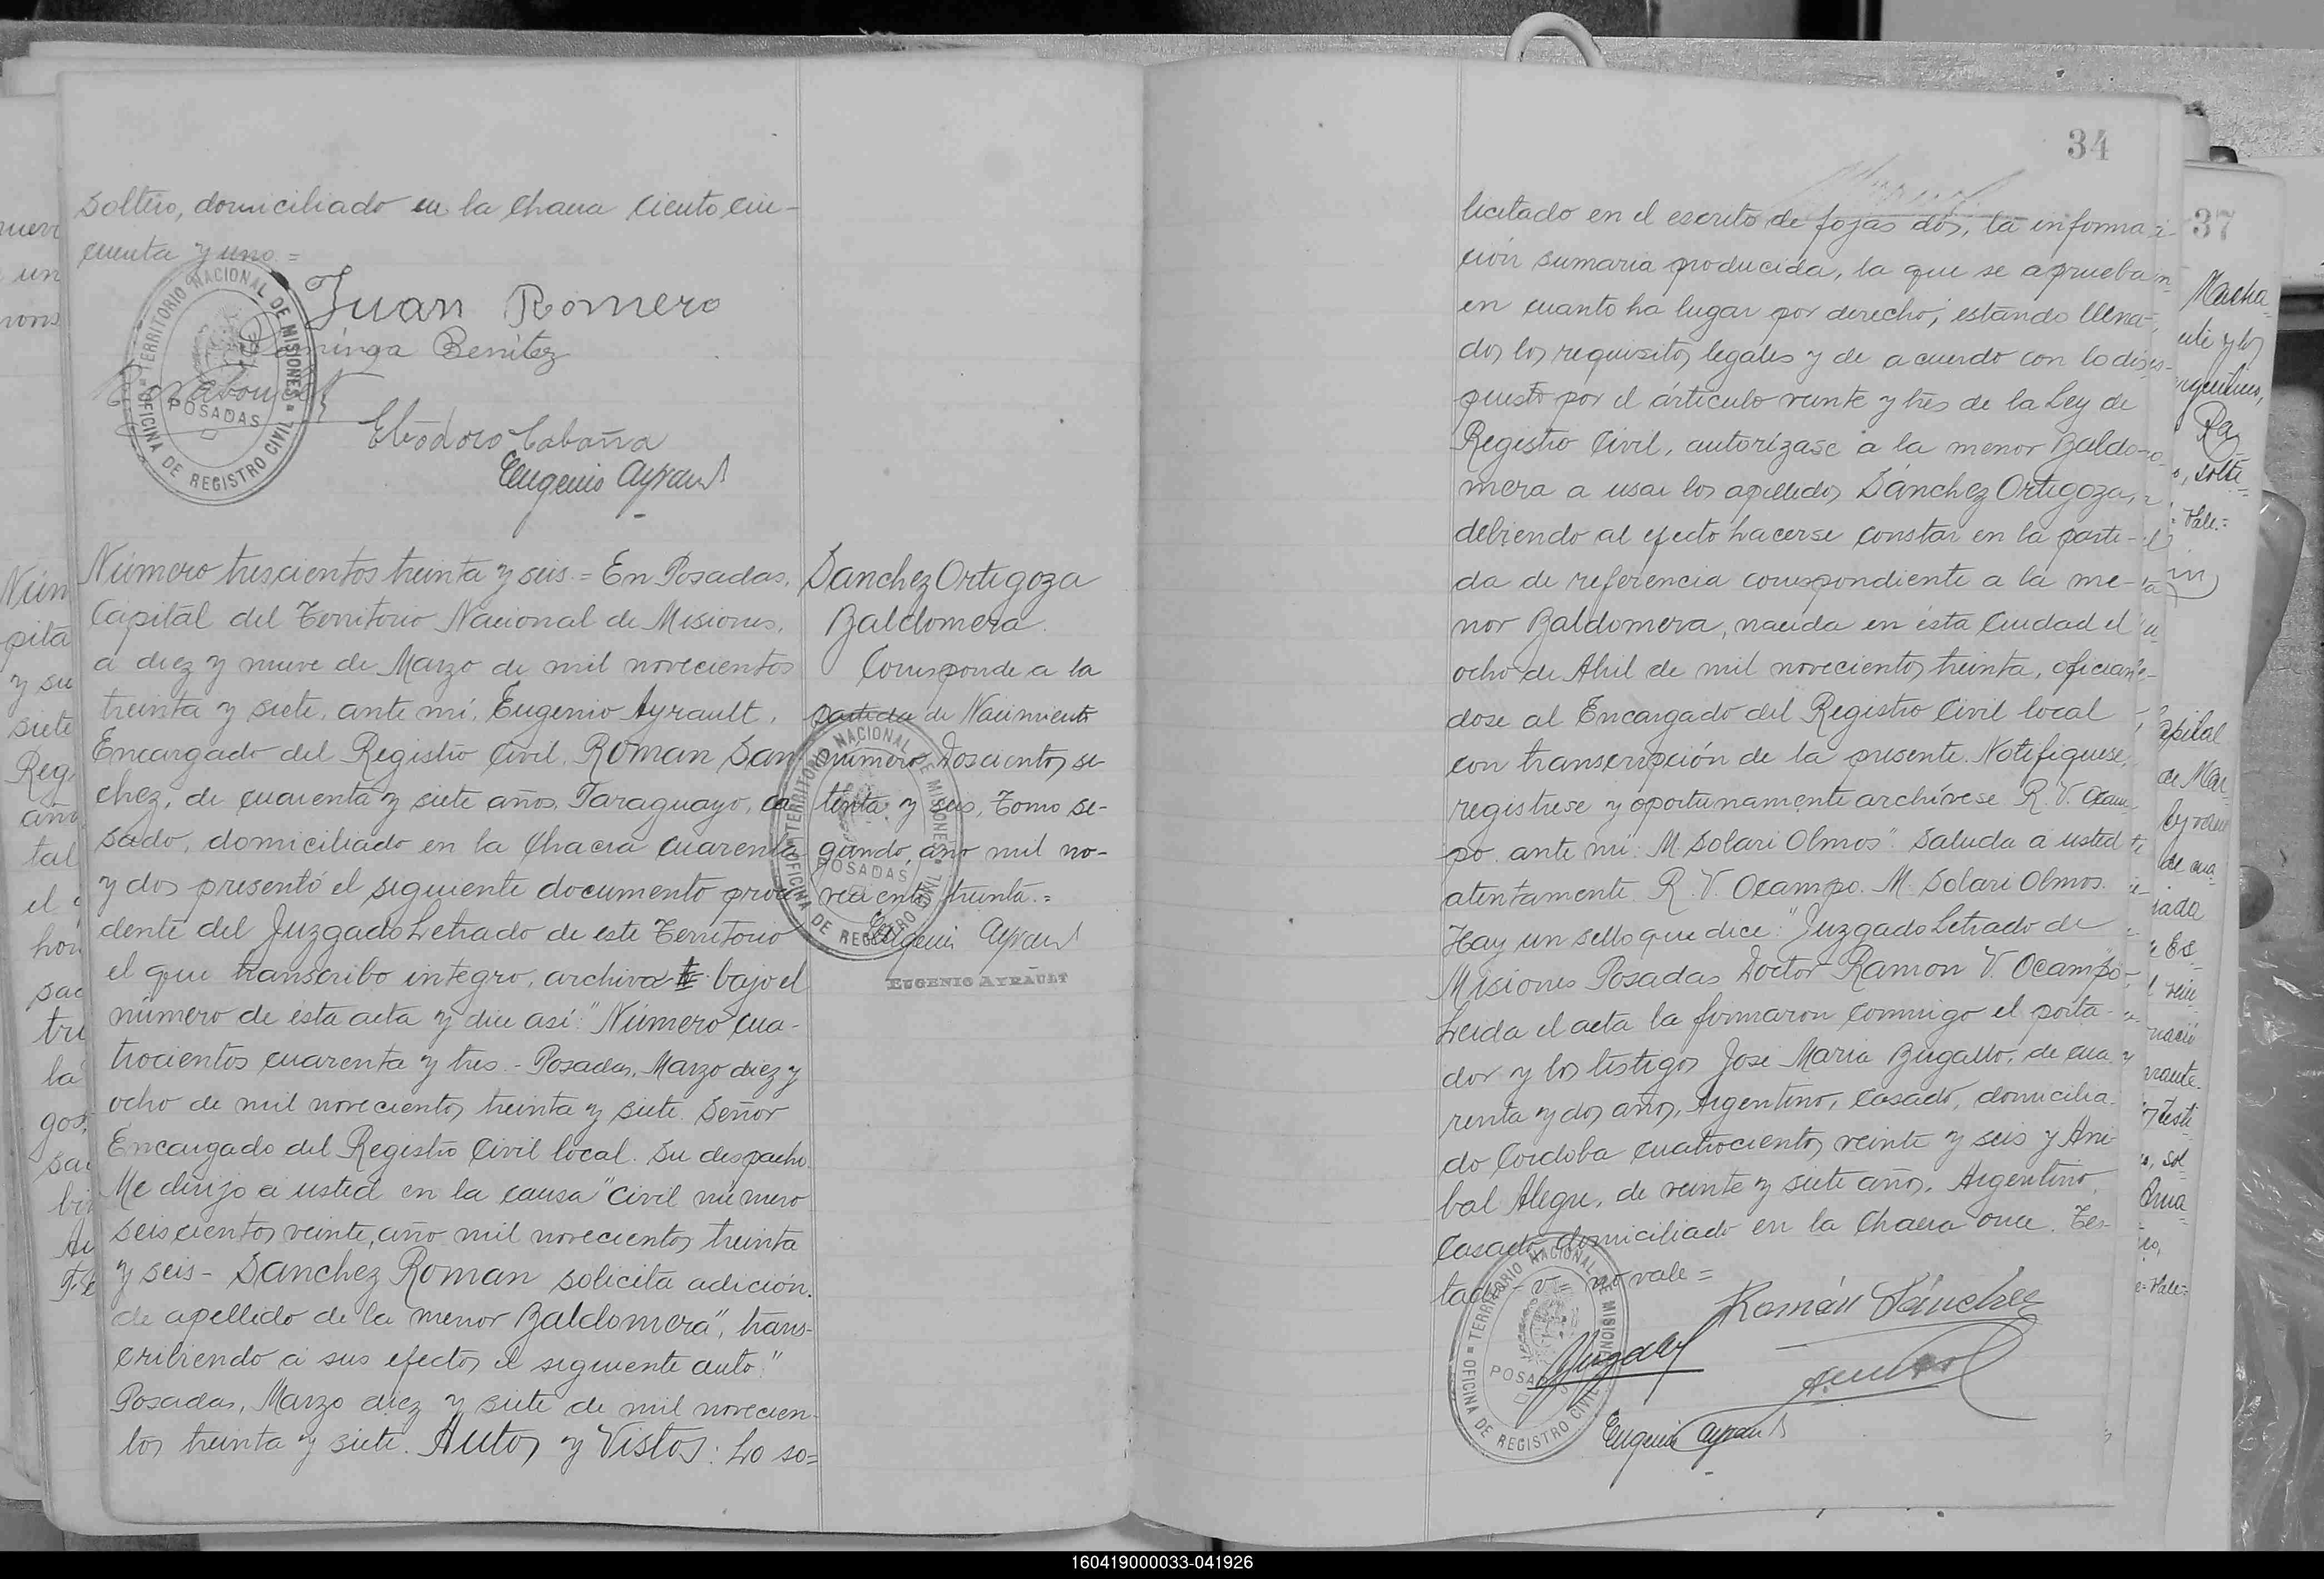 soltero, domiciliado en la Chacra ciento cin-
cuenta y uno. =
Juan Romero
Dominga Benítez
Eleodoro Cabaña
Eugenio Ayrault
TERRITORIO NACIONAL DE MISIONES
OFICINA DE REGISTRO CIVIL
POSADAS
Número trescientos treinta y seis = En Posadas,
Capital del Territorio Nacional de Misiones,
a diez y nueve de Marzo de mil novecientos
treinta y siete, ante mí, Eugenio Ayrault,
Encargado del Registro Civil, ROMAN San
chez, de cuarenta y siete años, Paraguayo, ca
sado, domiciliado en la Chacra cuarenta
y dos presentó el siguiente documento proce
dente del Juzgado Letrado de este Territorio
el que transcribo integro, archivo bajo el
número de esta acta y dice así: "Número cua-
trocientos cuarenta y tres. - Posadas, Marzo diez y
ocho de mil novecientos treinta y siete. Señor
Encargado del Registro Civil local. Su despacho.
Me dirijo a usted en la causa "Civil número
seiscientos veinte, año mil novecientos treinta
y seis - Sanchez Roman solicita adición.
de apellido de la menor Baldomera", trans-
cribiendo a sus efectos el siguiente auto:"
Posadas, Marzo diez y siete de mil novecien-
tos treinta y siete. Autos y Vistos: Lo so=
Sanchez Ortigoza
Baldomera.
Corresponde a la
partida de Nacimiento
número Doscientos se-
tenta y seis, Tomo se-
gundo, año mil no-
vecientos treinta. =
Eugenio Ayrault
EUGENIO AYRAULT
TERRITORIO NACIONAL DE MISIONES
OFICINA DE REGISTRO CIVIL
POSADAS
34
licitado en el escrito de fojas dos, la informa
ción sumaria producida, la que se aprueba
en cuanto ha lugar por derecho; estando llena-
dos los requisitos legales y de acuerdo con lo dis-
puesto por el árticulo veinte y tres de la Ley de
Registro Civil, autorízase a la menor Baldo-
mera a usar los apellidos Sánchez Ortigoza,
debiendo al efecto hacerse constar en la parti-
da de referencia correspondiente a la me-
nor Baldomera, nacida en ésta Ciudad el
ocho de Abril de mil novecientos treinta, oficián-
dose al Encargado del Registro Civil local
con transcripción de la presente. Notifíquese,
regístrese y oportunamente archívese R. V. Ocam-
po. ante mí: M. Solari Olmos". Saluda a usted
atentamente. R. V. Ocampo. M. Solari Olmos.
Hay un sello que dice: "Juzgado Letrado de
Misiones Posadas Doctor Ramon V. Ocampo"
Leida el acta la firmaron conmigo el porta-
dor y los testigos José Maria Bugallo, de cua
renta y dos años, Argentino, Casado, domicilia-
do Cordoba cuatrocientos veinte y seis y Ani
bal Alegre, de veinte y siete años, Argentino,
Casado, domiciliado en la Chacra once. Tes-
tado - v = no vale =
Román Sánchez
Eugenio Ayrault
TERRITORIO NACIONAL DE MISIONES
OFICINA DE REGISTRO CIVIL
POSADAS
37
160419000033-041926